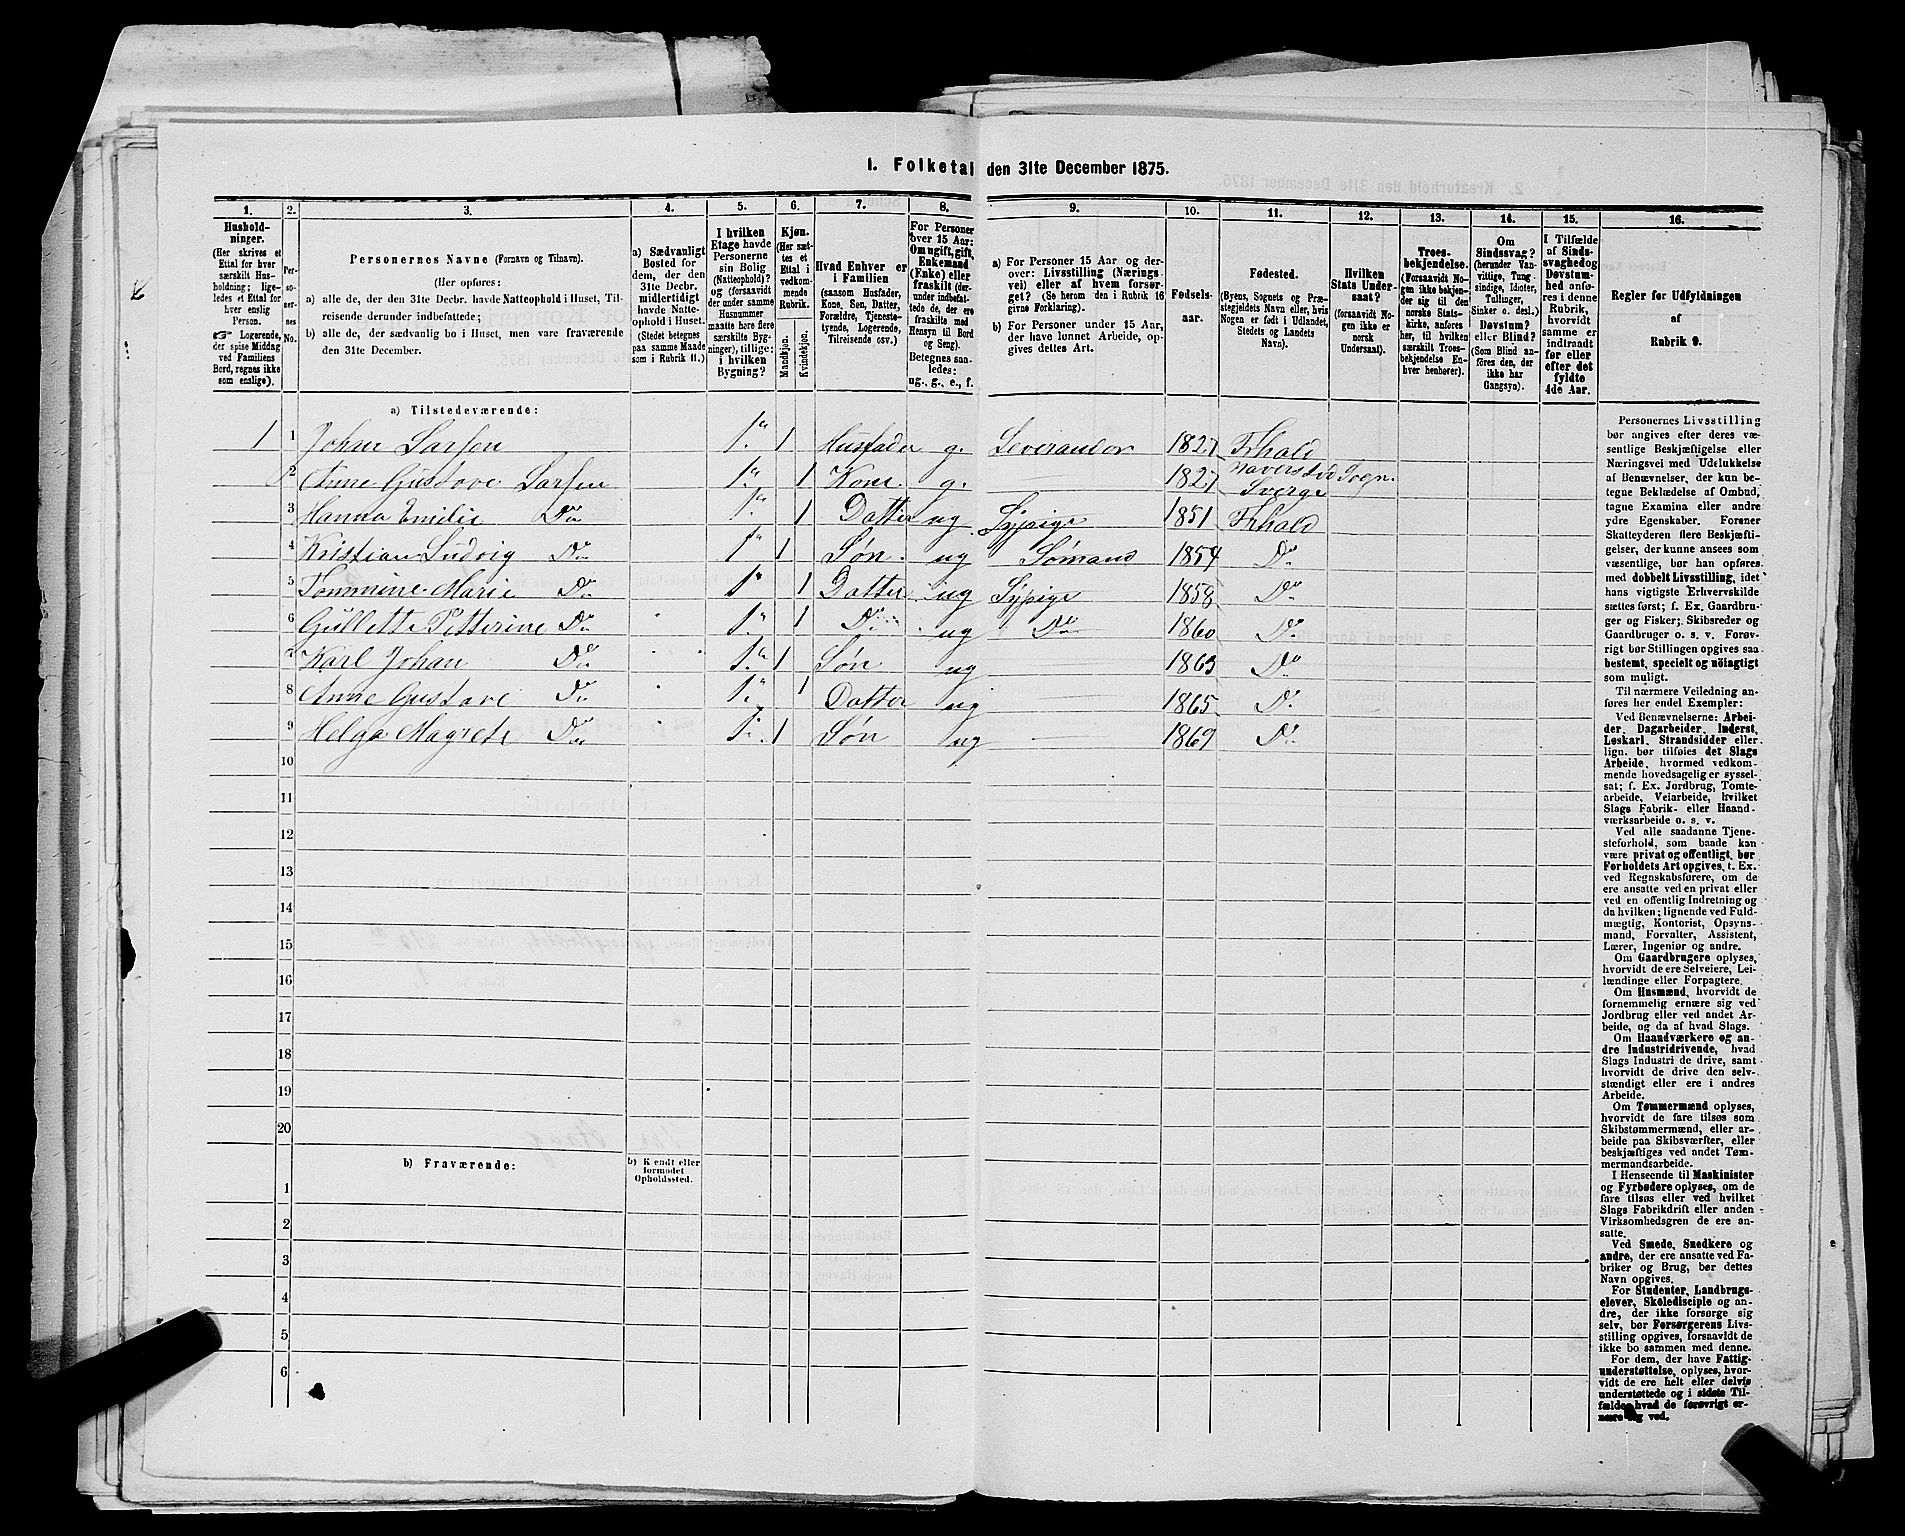 1. Folketal den 31te December 1875.
1. 2. 3. 4. 5. 6. 7. 8. 9. 10. 11. 12. 13. 14. 15. 16.
Hushold-
ninger.
(Her skrives et
Ettal for hver
særskilt Hus-
holdning; lige-
ledes et Ettal for
hver enslig
Person.
Logerende,
der spise Middag
ved Familiens
Bord, regnes ikke
som enslige).
Per-
so-
ner-
nes
No.
Personernes Navne (Fornavn og Tilnavn).
(Her opføres:
a) alle de, der den 31te Decbr. havde Natteophold i Huset, Til-
reisende derunder indbefattede;
b) alle de, der sædvanlig bo i Huset, men vare fraværende
den 31te December.
a) Sædvanligt
Bosted for
dem, der den
31te Decbr.
midlertidigt
havde Natte-
ophold i Huset.
(Stedet betegnes
paa samme Maade
som i Rubrik 11.)
I hvilken
Etage havde
Personerne
sin Bolig
(Natteophold)?
og (forsaavidt
der under samme
Husnummer
maatte høre flere
særskilte Byg-
ninger), tillige:
i hvilken
Bygning?
Kjøn.
(Her sæt-
tes et
Ettal i
vedkom-
mende
Rubrik.
Mandkjøn.
Kvindekjøn.
Hvad Enhver er
i Familien
(saasom Husfader,
Kone, Søn, Datter,
Forældre, Tjeneste-
tyende, Logerende,
Tilreisende osv.).
For Personer
over 15 Aar:
Om ugift, gift,
Enkemand
(Enke) eller
fraskilt (der-
under indbefat-
tede de, der ere
fraskilte med
Hensyn til Bord
og Seng).
Betegnes saa-
ledes:
ug., g., e., f.
a) For Personer 15 Aar og der-
over: Livsstilling (Nærings-
vei) eller af hvem forsør-
get? (Se herom den i Rubrik 16
givne Forklaring).
b) For Personer under 15 Aar,
der have lønnet Arbeide, op-
gives dettes Art.
Fødsels-
aar.
Fødested.
(Byens, Sognets og Præ-
stegjeldets Navn eller, hvis
Nogen er født i Udlandet,
Stedets og Landets
Navn).
Hvilken
Stats Under-
saat?
(forsaavidt No-
gen ikke er
norsk
Undersaat).
Troes-
bekjendelse.
(Forsaavidt No-
gen ikke bekjen-
der sig til den
norske Stats-
kirke, anføres
her, til hvilken
særskilt Troes-
bekjendelse En-
hver henhører).
Om
Sindssvag?
(herunder Van-
vittige, Tung-
sindige, Idioter,
Tullinger,
Sinker o. desl.)
Døvstum?
eller Blind?
(Som Blind an-
føres den, der
ikke har
Gangsyn).
I Tilfælde
af Sinds-
svaghed og
Døvstum-
hed anfø-
res i denne
Rubrik,
hvorvidt
samme er
indtraadt
før eller
efter det
fyldte
4de Aar.
Regler for Udfyldningen
af
Rubrik 9.
a) Tilstedeværende:
1 1 Johan Larsen 1. 1 Husfader g. Leverandør 1827 Frhald
2 Anne Gustave Larsen 1. 1 Kone g. 1827 Naverstad Sogn. Sverge
3 Hanna Emilie Do 1. 1 Datter ug Sypige 1851 Frhald
4 Kristian Ludvig Do 1. 1 Søn ug Sømand 1854 Do
5 Tommine Marie Do 1. 1 Datter ug Sypige 1858 Do
6 Gullette Petterine Do 1. 1 Do ug Do 1860 Do
7 Karl Johan Do 1. 1 Søn ug 1863 Do
8 Anne Gustave Do 1. 1 Datter ug 1865 Do
9 Helga Magrete Do 1. 1 Søn ug 1869 Do
10
11
12
13
14
15
16
17
18
19
20
b) Fraværende:
b) Kjendt eller
formodet
Opholdssted.
1
2
3
4
5
6
Personernes Livsstilling
bør angives efter deres væ-
sentlige Beskjæftigelse eller
Næringsvei med Udelukkelse
af Benævnelser, der kun be-
tegne Beklædelse af Ombud,
tagne Examina eller andre
ydre Egenskaber. Forener
Skatteyderen flere Beskjæfti-
gelser, der kunne ansees som
væsentlige, bør han opføres
med dobbelt Livsstilling, idet
hans vigtigste Erhvervskilde
sættes først; f. Ex. Gaardbru-
ger og Fisker; Skibsreder og
Gaardbruger o. s. v. Forøv-
rigt bør Stillingen opgives saa
bestemt, specielt og nöiagtigt
som muligt.
Til nærmere Veiledning an-
føres her endel Exempler:
Ved Benævnelserne: Arbei-
der, Dagarbeider, Inderst,
Løskarl, Strandsidder eller
lign. bør tilføies det Slags
Arbeide, hvormed vedkom-
mende hovedsagelig er syssel-
sat; f. Ex. Jordbrug, Tomte-
arbeide, Veiarbeide, hvilket
Slags Fabrik- eller Haand-
værksarbeide o. s. v.
Ved alle saadanne Tjene-
steforhold, som baade kan
være privat og offentligt, bør
Forholdets Art opgives, t. Ex.
ved Regnskabsførere, om de
ere ansatte ved en privat eller
ved en offentlig Indretning og
da hvilken; lignende ved Fuld-
mægtig, Kontorist, Opsyns-
mand, Forvalter, Assistent,
Lærer, Ingeniør og andre.
Om Gaardbrugere oplyses,
hvorvidt de ere Selveiere, Lei-
lændinge eller Forpagtere.
Om Husmænd, hvorvidt de
fornemmelig ernære sig ved
Jordbrug eller ved andet Ar-
beide, og da af hvad Slags.
Om Haandværkere og an-
dre Industridrivende, hvad
Slags Industri de drive, samt
hvorvidt de drive den selv-
stændigt eller ere i andres
Arbeide.
Om Tømmermænd oplyses,
hvorvidt de fare tilsøs som
Skibstømmermænd, eller ar-
beide paa Skibsværfter, eller
beskjæftiges ved andet Tøm-
mermandsarbeide.
I Henseende til Maskinister
og Fyrbødere oplyses, om de
fare tilsøs eller ved hvilket
Slags Fabrikdrift eller anden
Virksomhedsgren de ere an-
satte.
Ved Smede, Snedkere og
andre, der ere ansatte ved Fa-
briker og Brug, bør dettes
Navn opgives.
For Studenter, Landbrugs-
elever, Skoledisciple og an-
dre, der ikke forsørge sig
selv, bør Forsørgerens Livs-
stilling opgives, forsaavidt de
ikke bo sammen med denne.
For dem, der have Fattig-
understøttelse, oplyses, hvor-
vidt de ere helt eller delvis
understøttede og i sidste Til-
fælde, hvad de forøvrigt er-
nære sig ved.